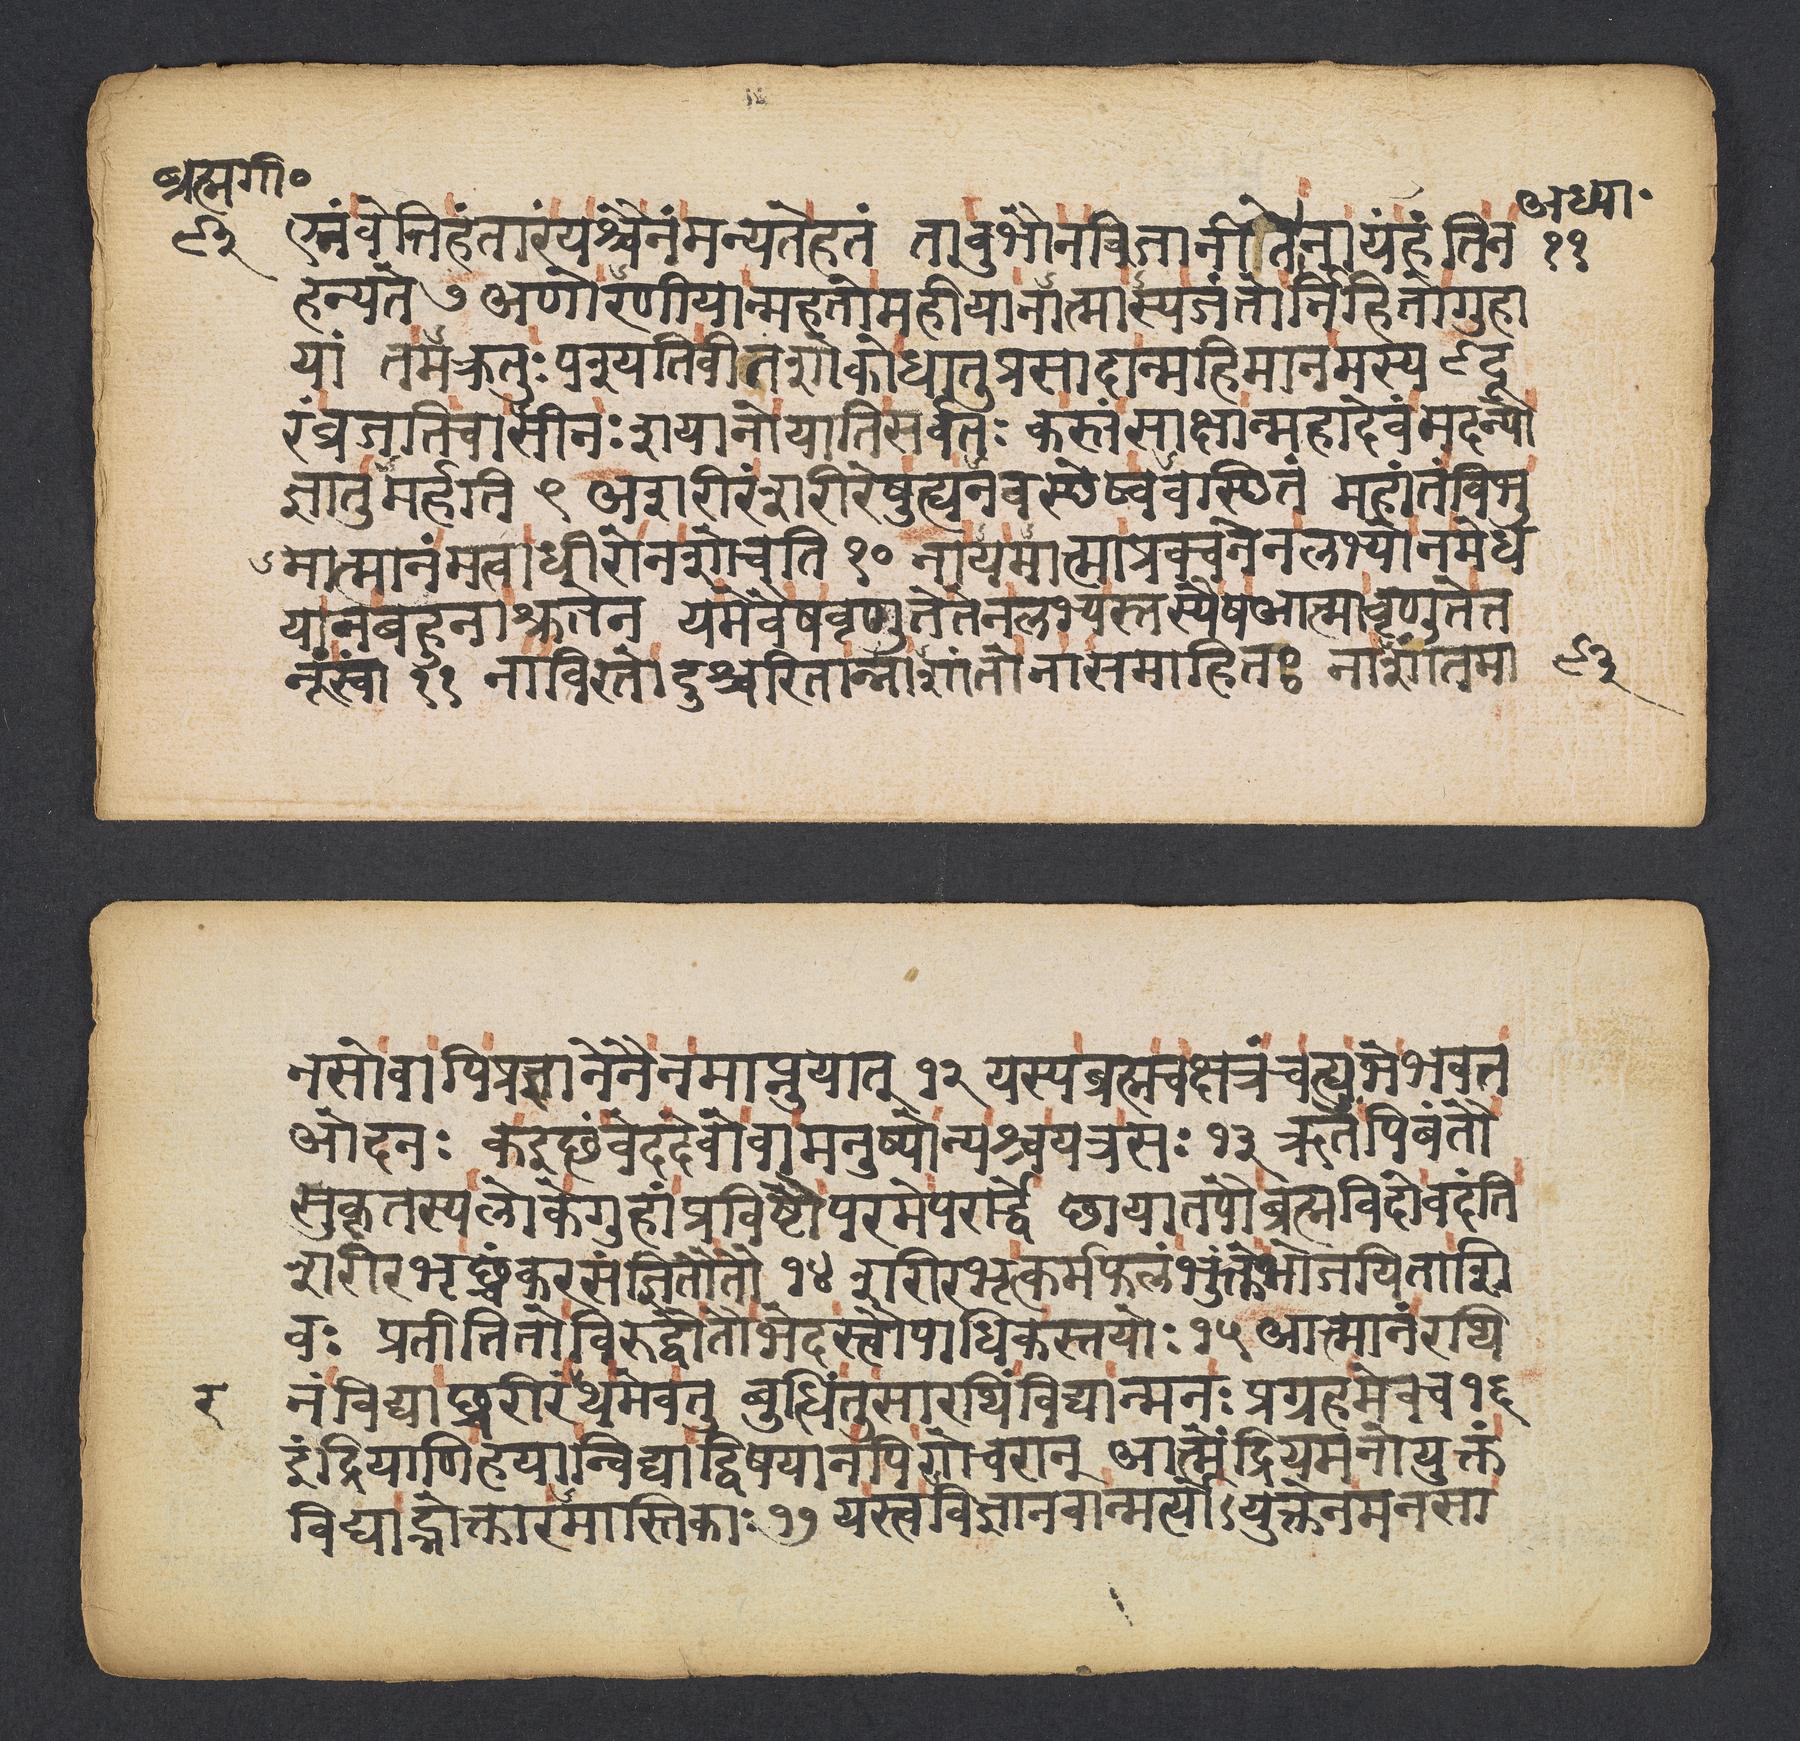 ब्रह्मगी॰
अध्या॰
८३
११
एनं वेत्ति हंतारं यश्चैनं मन्यते हतं तावुभौ न विजानीतो नायं हंति न
हन्यते ७ अणोरणीयान्महतो महीयानात्मास्य जंतोर्निहितो गुहा
यां तमक्रतुः पश्यति वीतशोको धातुप्रसादान्महिमानमस्य ८ दू
रं व्रजति चासीनः शयानो याति सर्वतः कस्तं साक्षान्महादेवं मदन्यो
ज्ञातुमर्हति ९ अशरीरं शरीरेषु ह्यनवस्थेष्ववस्थितं महांतं विभु
मात्मानं मत्वा धीरो न शोचति १० नायमात्मा प्रवचनेन लभ्यो न मेध
या न बहुना श्रुतेन यमेवैष वृणुते तेन लभ्यस्तस्यैष आत्मा वृणुते त
नूं स्वां ११ नाविरतो दुश्चरितान्नाशांतो नासमाहितः नाशांतमा
८३
नसो वापि प्रज्ञानेनैनमाप्नुयात् १२ यस्य ब्रह्म च क्षत्रं च ह्युभे भवत
ओदनः कइछं वेद देवो वा मनुष्योन्यश्च यत्र सः १३ ऋतं पिबंतौ
सुकृतस्य लोके गुहां प्रविष्टौ परमे परार्द्धे छायातपौ ब्रह्मविदो वदंति
शरीरभृछंकरसंज्ञितौ तौ १४ शरीरभृत्कर्मफलं भुंक्ते भोजयिता शि
वः प्रतीतितो विरुद्धौ तौ भेदस्त्वौपाधिकस्तयोः १५ आत्मानं रथि
नं विद्याछरीरं थमेव तु बुद्धिं तु सारथिं विद्यान्मनः प्रग्रहमेव च १६
र
इंद्रियाणि हयान्विद्याद्विषयानपि गोचरान् आत्मेंद्रियमनोयुक्तं
विद्याद्भोक्तारमास्तिकाः १७ यस्त्वविज्ञानवान्मर्त्योऽयुक्तेन मनसा